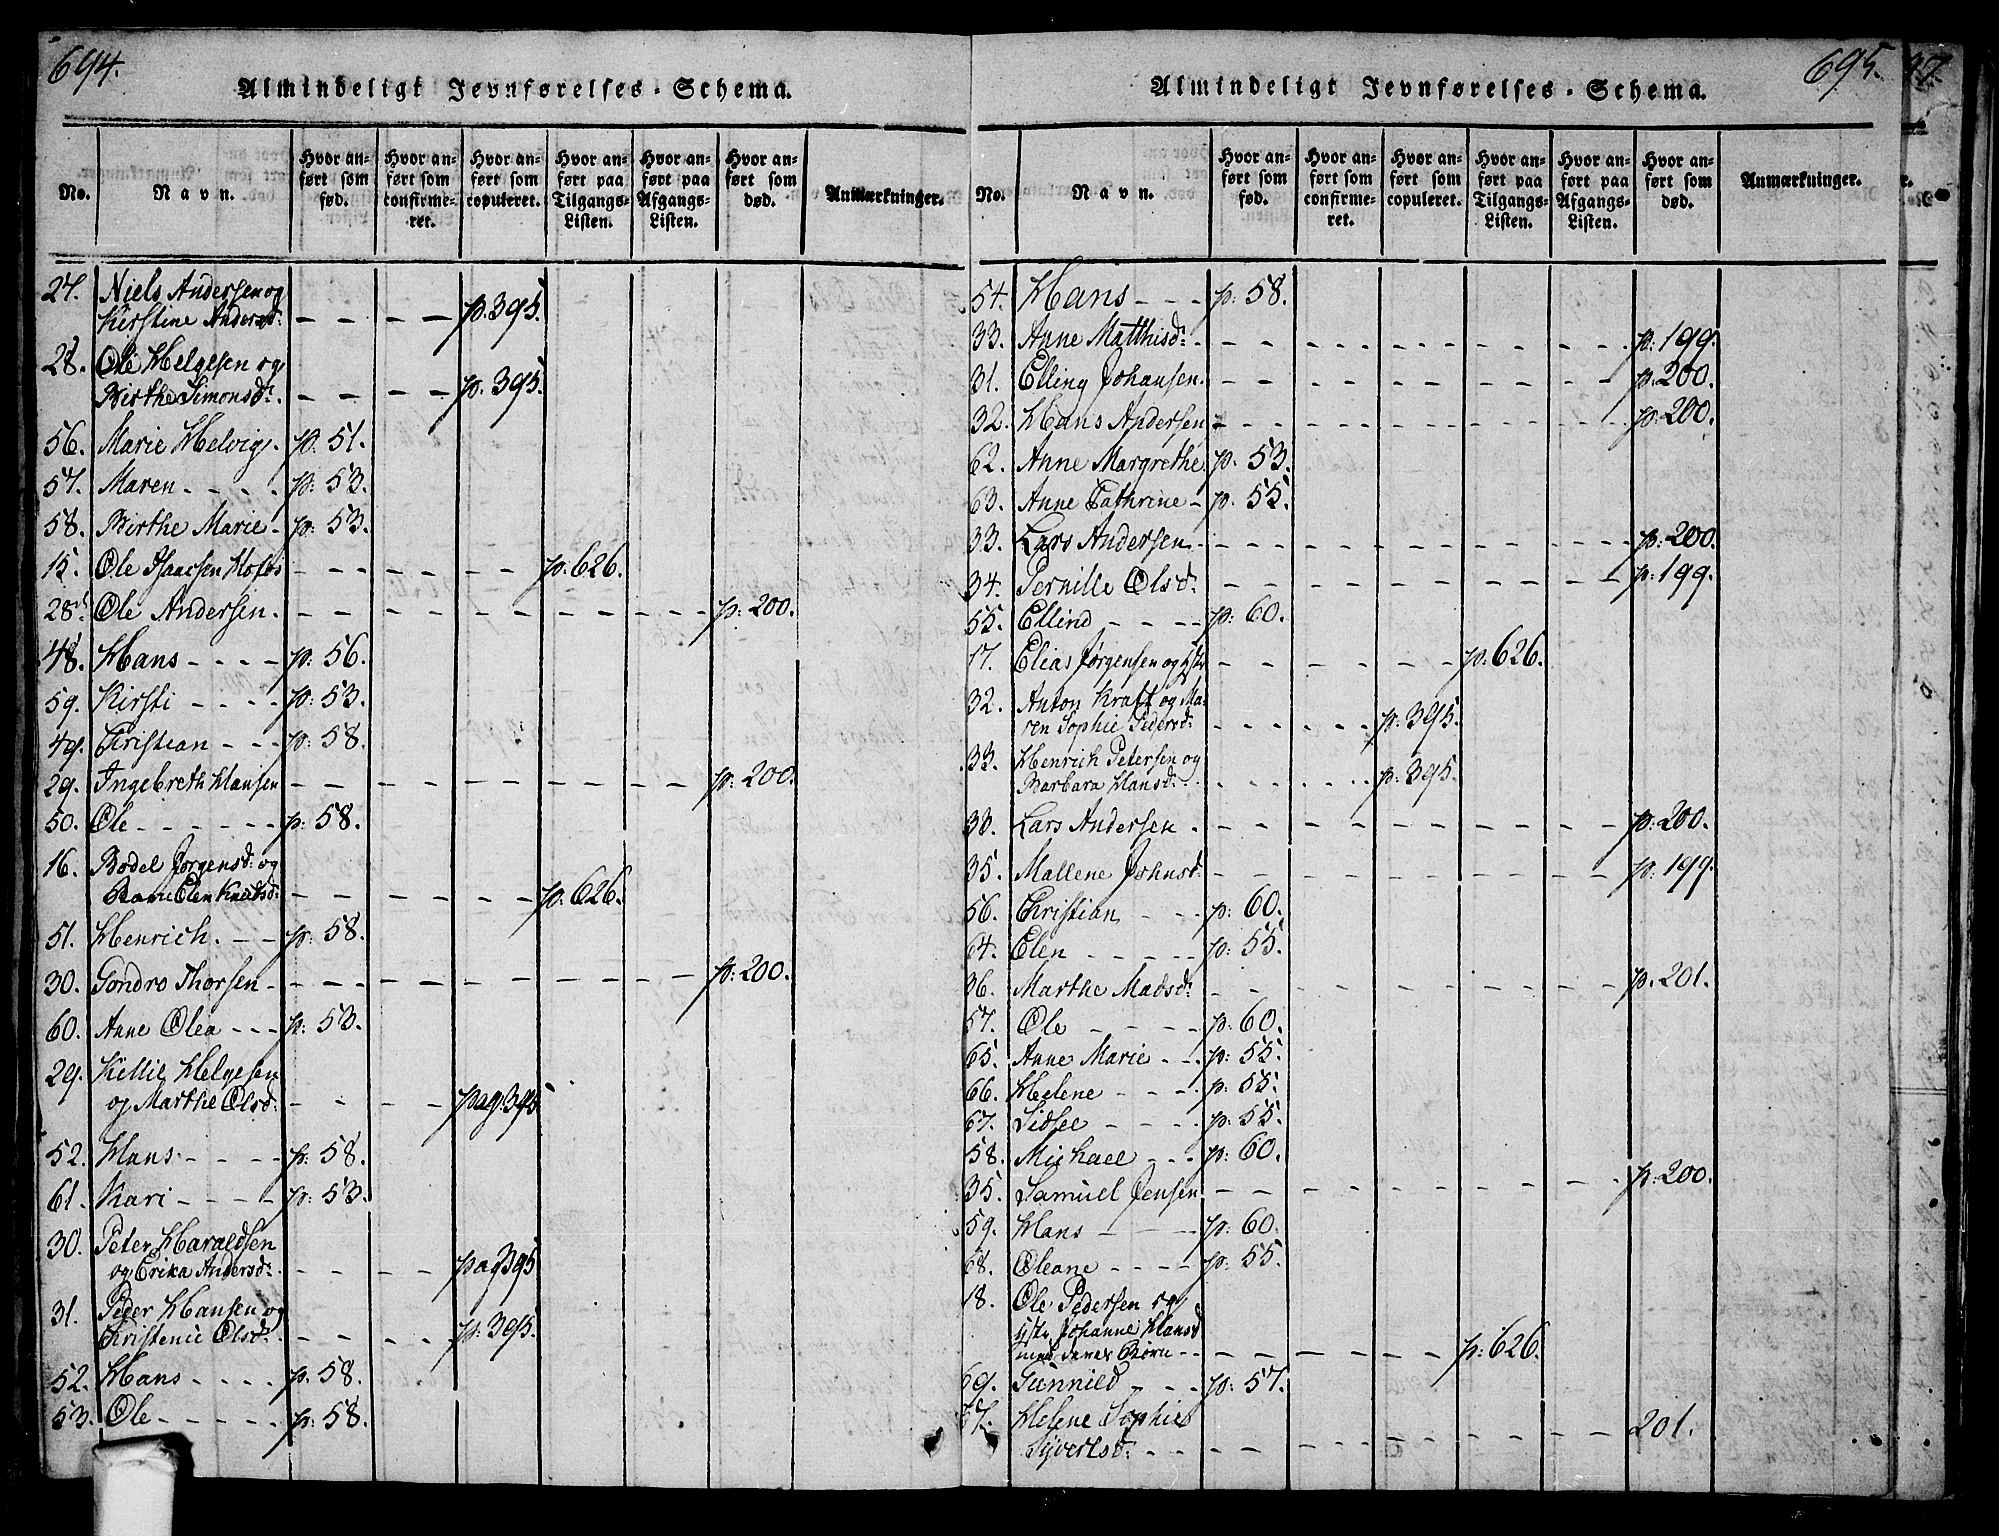 694.
Almindeligt Jevnførelses-Schema.
No.
Navn.
Hvor anført som fød.
Hvor anført som confirmeret.
Hvor anført som copuleret.
Hvor anført paa Tilgangs-Listen.
Hvor anført paa Afgangs-Listen.
Hvor anført som død.
Anmærkninger.
27. Niels Andersen og
Kirstine Andersd: - - - - p. 395.
28. Ole Helgesen og
Birthe Simonsd: - - - - p. 395.
56. Marie Helvig. p. 51.
57. Maren - - - - p: 53.
58. Birthe Marie - p: 53.
15. Ole Isaacsen Hofos - - - - - - p. 626.
28. Ole Andersen. - - - - - - - - - - p: 200.
48. Hans - - - - p: 56.
59. Kirsti - - - - p: 53.
49. Christian - - - p: 58.
29. Ingebreth Hansen - - - - - - - - - - p: 200.
50. Ole - - - - - - p: 58.
16. Bodel Jørgensd: og
Elen Knudsd: - - - - - - p: 626.
51. Henrich. - - - p: 58.
30. Gondro Thorsen - - - - - - - - - - p: 200.
60. Anne Olea - - - p: 53.
29. Kittil Helgesen
og Marthe Olsd: - - - - pag. 395
52. Hans - - - - p: 58.
61. Kari - - - - p: 53.
30. Peter Haraldsen
og Erika Andersd: - - - - pag 395
31. Peder Hansen og
Christenie Olsd: - - - - p: 395.
52. Hans - - - - p. 58.
53. Ole - - - - - p: 58.
695.
Almindeligt Jevnførelses-Schema.
No.
Navn.
Hvor anført som fød.
Hvor anført som confirmeret.
Hvor anført som copuleret.
Hvor anført paa Tilgangs-Listen.
Hvor anført paa Afgangs-Listen.
Hvor anført som død.
Anmærkninger.
54. Hans - - - p: 58.
33. Anne Matthisd: - - - - - - - - - - p: 199.
31. Elling Johansen. - - - - - - - - - - p. 200.
32. Hans Andersen - - - - - - - - - - p: 200.
62. Anne Margrethe p. 53.
63. Anne Cathrine - p: 55.
33. Lars Andersen - - - - - - - - - - p: 200.
34. Pernille Olsd: - - - - - - - - - - p: 199.
55. Ellind - - - - p: 60.
17. Elias Jørgensen og - - - - - - p. 626.
32. Anton Kraft og Ma-
ren Sophie Pedersd: - - - - p: 395.
33. Henrich Petersen og
Barbara Hansd: - - - - p: 395.
33. Lars Andersen - - - - - - - - - - p: 200.
35. Mallene Johnsd: - - - - - - - - - - p: 199.
56. Christian - - - p: 60.
64. Elen - - - - - p: 55.
36. Marthe Madsd: - - - - - - - - - - p. 201.
57. Ole - - - - p: 60.
65. Anne Marie - - p: 55.
66. Helene - - - - p: 55.
67. Sidsel - - - - p: 55.
58. Michael - - - p: 60.
35. Samuel Jensen - - - - - - - - - - p: 200.
59. Hans - - - p: 60.
68. Oleane - - - - p: 55.
18. Ole Pedersen og
Johanne Hansd
med deres Børn - - - - - - - p: 626.
69. Gunnild - - - p: 57.
37. Helene Sophie
Syvertsd: - - - - - - - - - - 201.